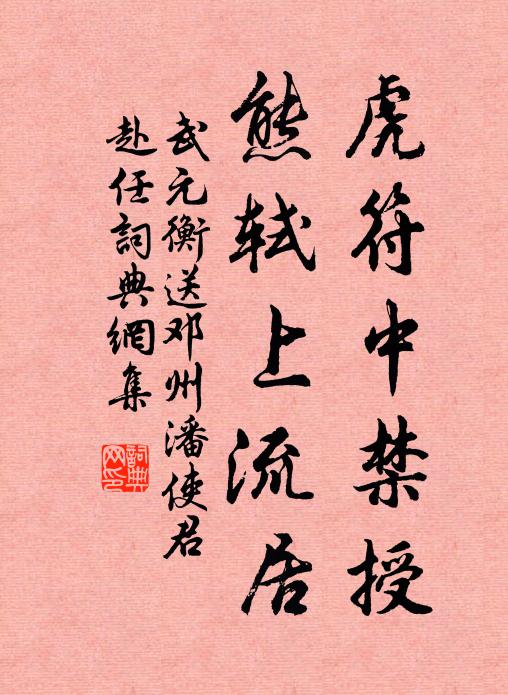 虎符中禁授
熊轼上流居
武元衡送邓州潘使君
赴任詞典網集
詞典
网印